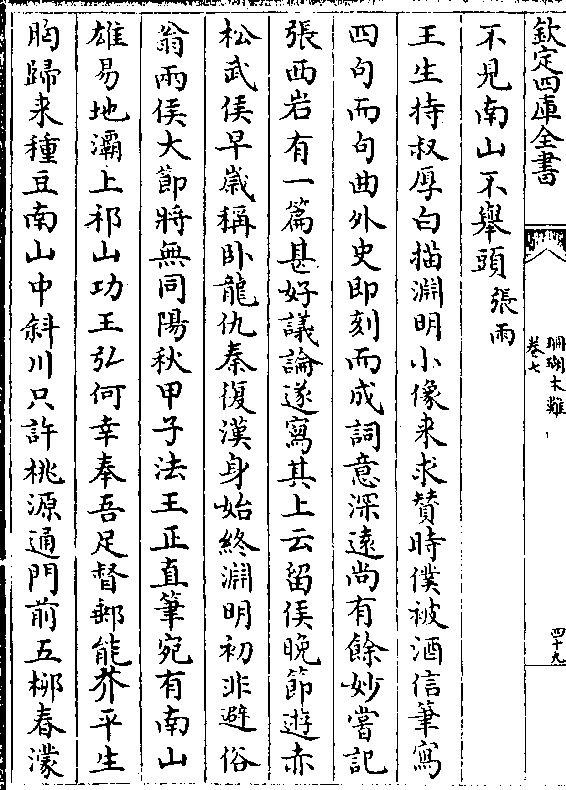 欽定四庫全書
珊瑚木難
卷七
四十九
不見南山不舉頭 張雨
王生持叔厚白描淵明小像来求賛時僕被酒信筆寫
四句而句曲外史即刻而成詞意深遠尚有餘妙嘗記
張西岩有一篇甚好議論遂寫其上云留侯晚節遊赤
松武侯早嵗稱卧龍仇秦復漢身始終淵明初非避俗
翁兩侯大節將無同陽秋甲子法王正直筆宛有南山
雄易地灞上祁山功王弘何幸奉吾足督郵能芥平生
胸歸来種豆南山中斜川只許桃源通門前五栁春濛